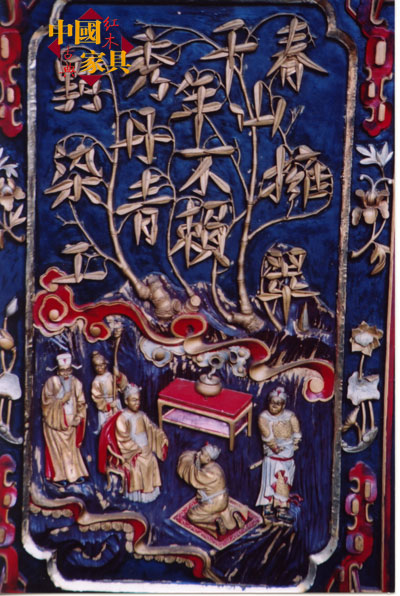 中國
紅木
古典
家具
春山擁
千年秀
不賴丹青
染工